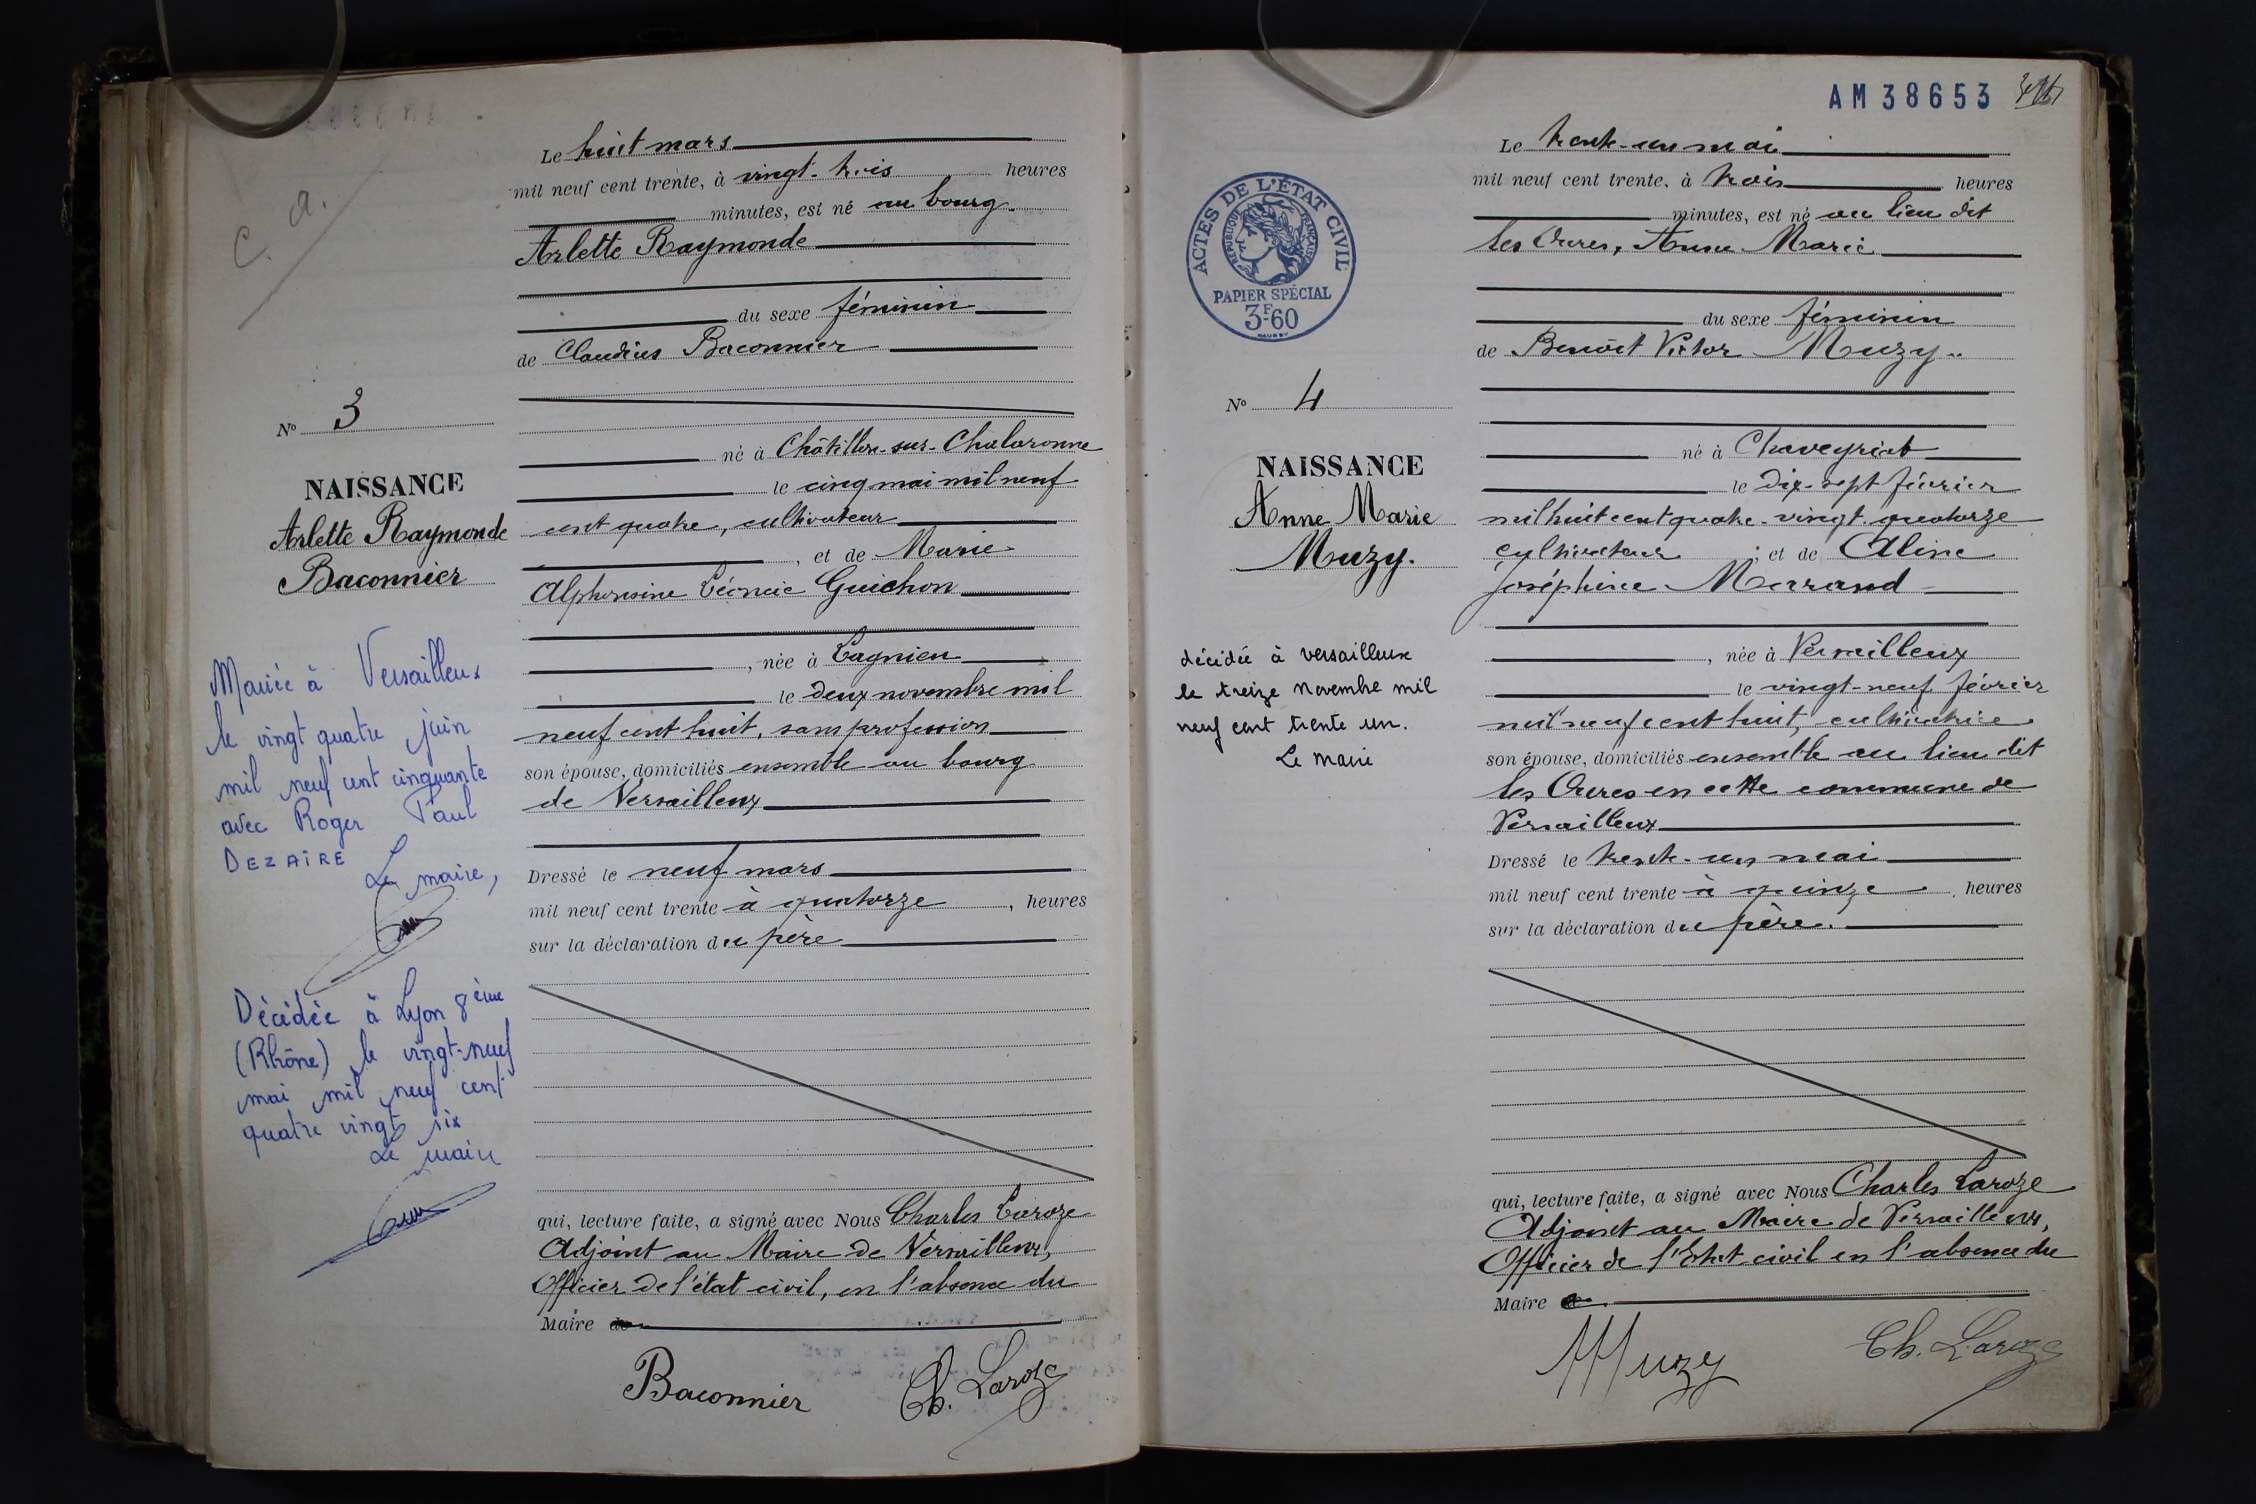 C. A.
Le huit mars
mil neuf cent trente, à vingt-trois heures
minutes, est né au bourg
Arlette Raymonde
du sexe féminin
de Claudius Baconnier
né à Châtillon-sur-Chalaronne
le cinq mai mil neuf
cent quatre, cultivateur
, et de Marie
Alphonsine Léoncie Guichon
, née à Lagnieu
le deux novembre mil
neuf cent huit, sans profession
son épouse, domiciliés ensemble au bourg
de Versailleux
Dressé le neuf mars
mil neuf cent trente à quatorze, heures
sur la déclaration du père
qui, lecture faite, a signé avec Nous Charles Laroze
Adjoint au Maire de Versailleux,
Officier de l'état civil, en l'absence du
Maire de
Baconnier Ch. Laroze
No 3
NAISSANCE
Arlette Raymonde
Baconnier
Mariée à Versailleux
le vingt quatre juin
mil neuf cent cinquante
avec Roger Paul
DEZAIRE
Le maire,
Décédée à Lyon 8ème
(Rhône) le vingt-neuf
mai mil neuf cent
quatre vingt six
Le maire
AM38653
ACTES DE L'ÉTAT CIVIL
RÉPUBLIQUE FRANÇAISE
PAPIER SPÉCIAL
3F60
No 4
NAISSANCE
Anne Marie
Muzy.
décédée à versailleux
le treize novembre mil
neuf cent trente un.
Le maire
Le trente-un mai
mil neuf cent trente, à trois heures
minutes, est né au lieu dit
les Oures, Anne Marie
du sexe féminin
de Benoît Victor Muzy
né à Chaveyriat
le dix-sept février
mil huit cent quatre-vingt-quatorze
cultivateur ; et de Aline
Joséphine Marand
, née à Versailleux
le vingt-neuf février
mil neuf cent huit, cultivatrice
son épouse, domiciliés ensemble au lieu dit
les Oures en cette commune de
Versailleux
Dressé le trente-un mai
mil neuf cent trente à quinze heures
sur la déclaration du père.
qui, lecture faite, a signé avec Nous Charles Laroze
Adjoint au Maire de Versailleux,
Officier de l'Etat civil en l'absence du
Maire
Muzy Ch. Laroze